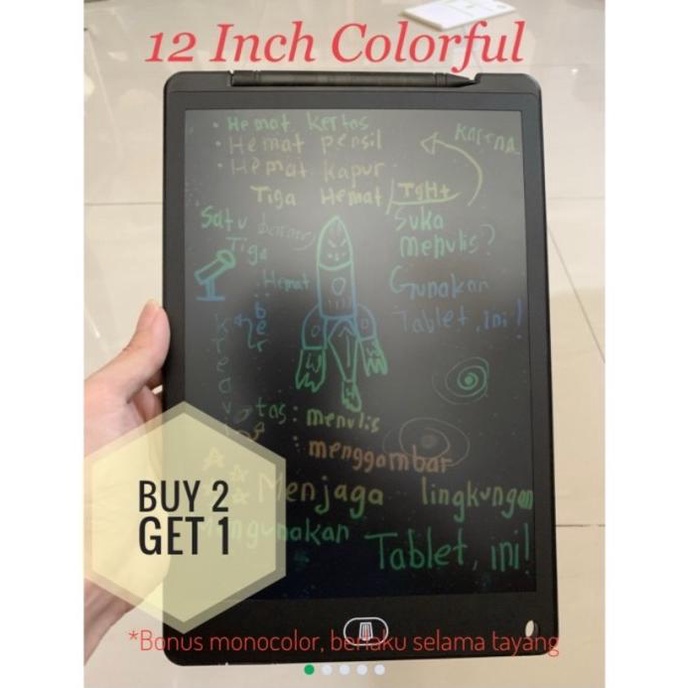 12 Inch Colorful
• Hemat kertas
• Hemat pensil
• Hemat kapur
karena
Tiga Hemat
TGHt
Satu
Tiga
Hemat
Suka
menulis?
Gunakan
Tablet, ini!
: menulis
: menggambar
Menjaga lingkungan
Tablet, ini!
BUY 2
GET 1
*Bonus monocolor, berlaku selama tayang